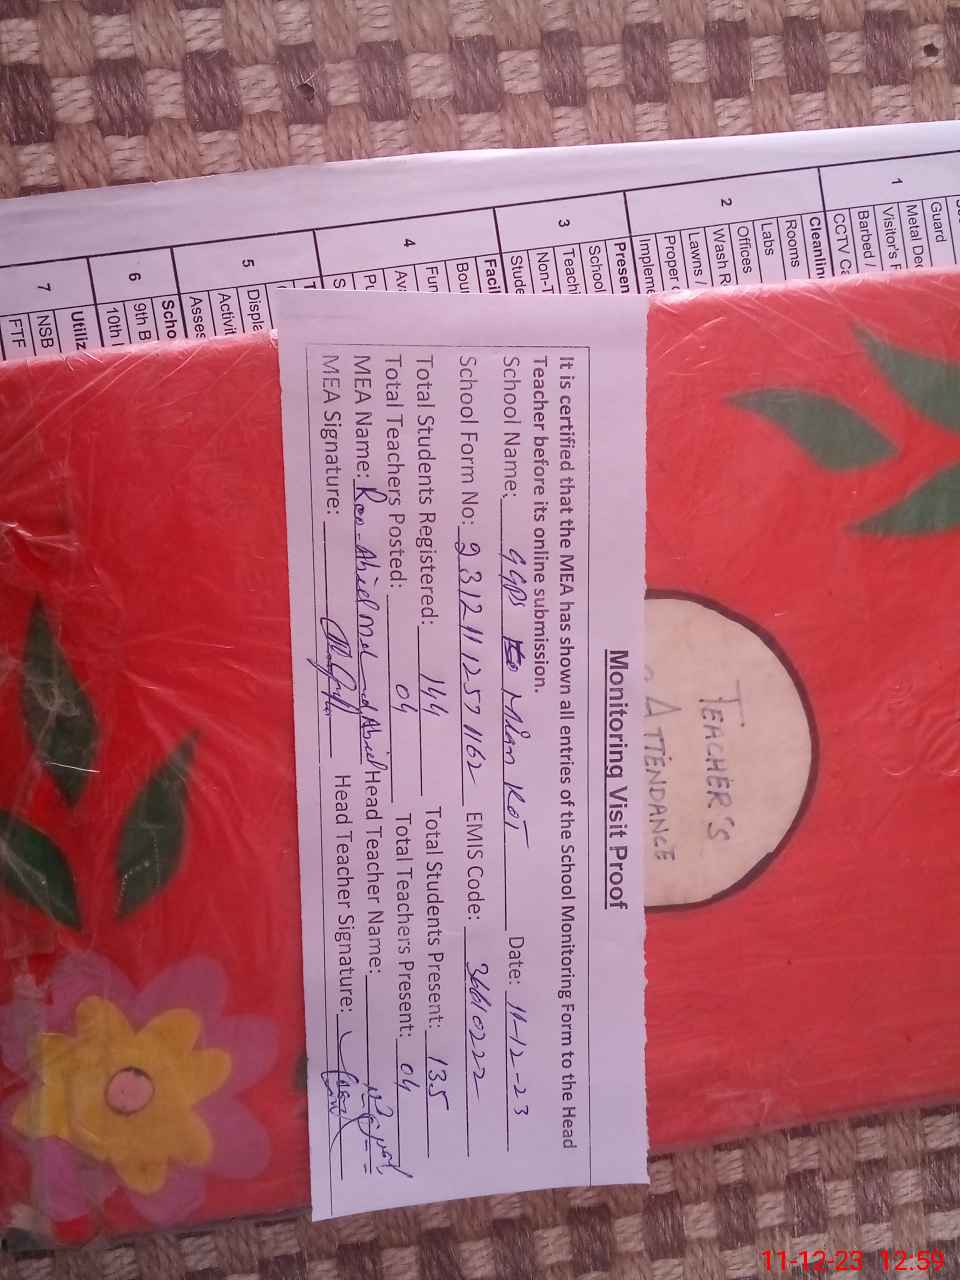 Monitoring Visit Proof
It is certified that the MEA has shown all entries of the School Monitoring Form to the Head
Teacher before its online submission.
School Name: GGPS Mian Kot Date: 11-12-23
School Form No: 93121112571162 EMIS Code: 36610222
Total Students Registered: 144 Total Students Present: 135
Total Teachers Posted: 04 Total Teachers Present: 04
MEA Name: Head Teacher Name:
MEA Signature: Head Teacher Signature:
TEACHER'S
ATTENDANCE
1
Guard
Metal
Visitor's
Barbed /
CCTV
2
Rooms
Labs
Offices
Wash
Lawns /
Proper
3
School
4
5
6
9th
10th
7
NSB
FTF
11-12-23 12:59